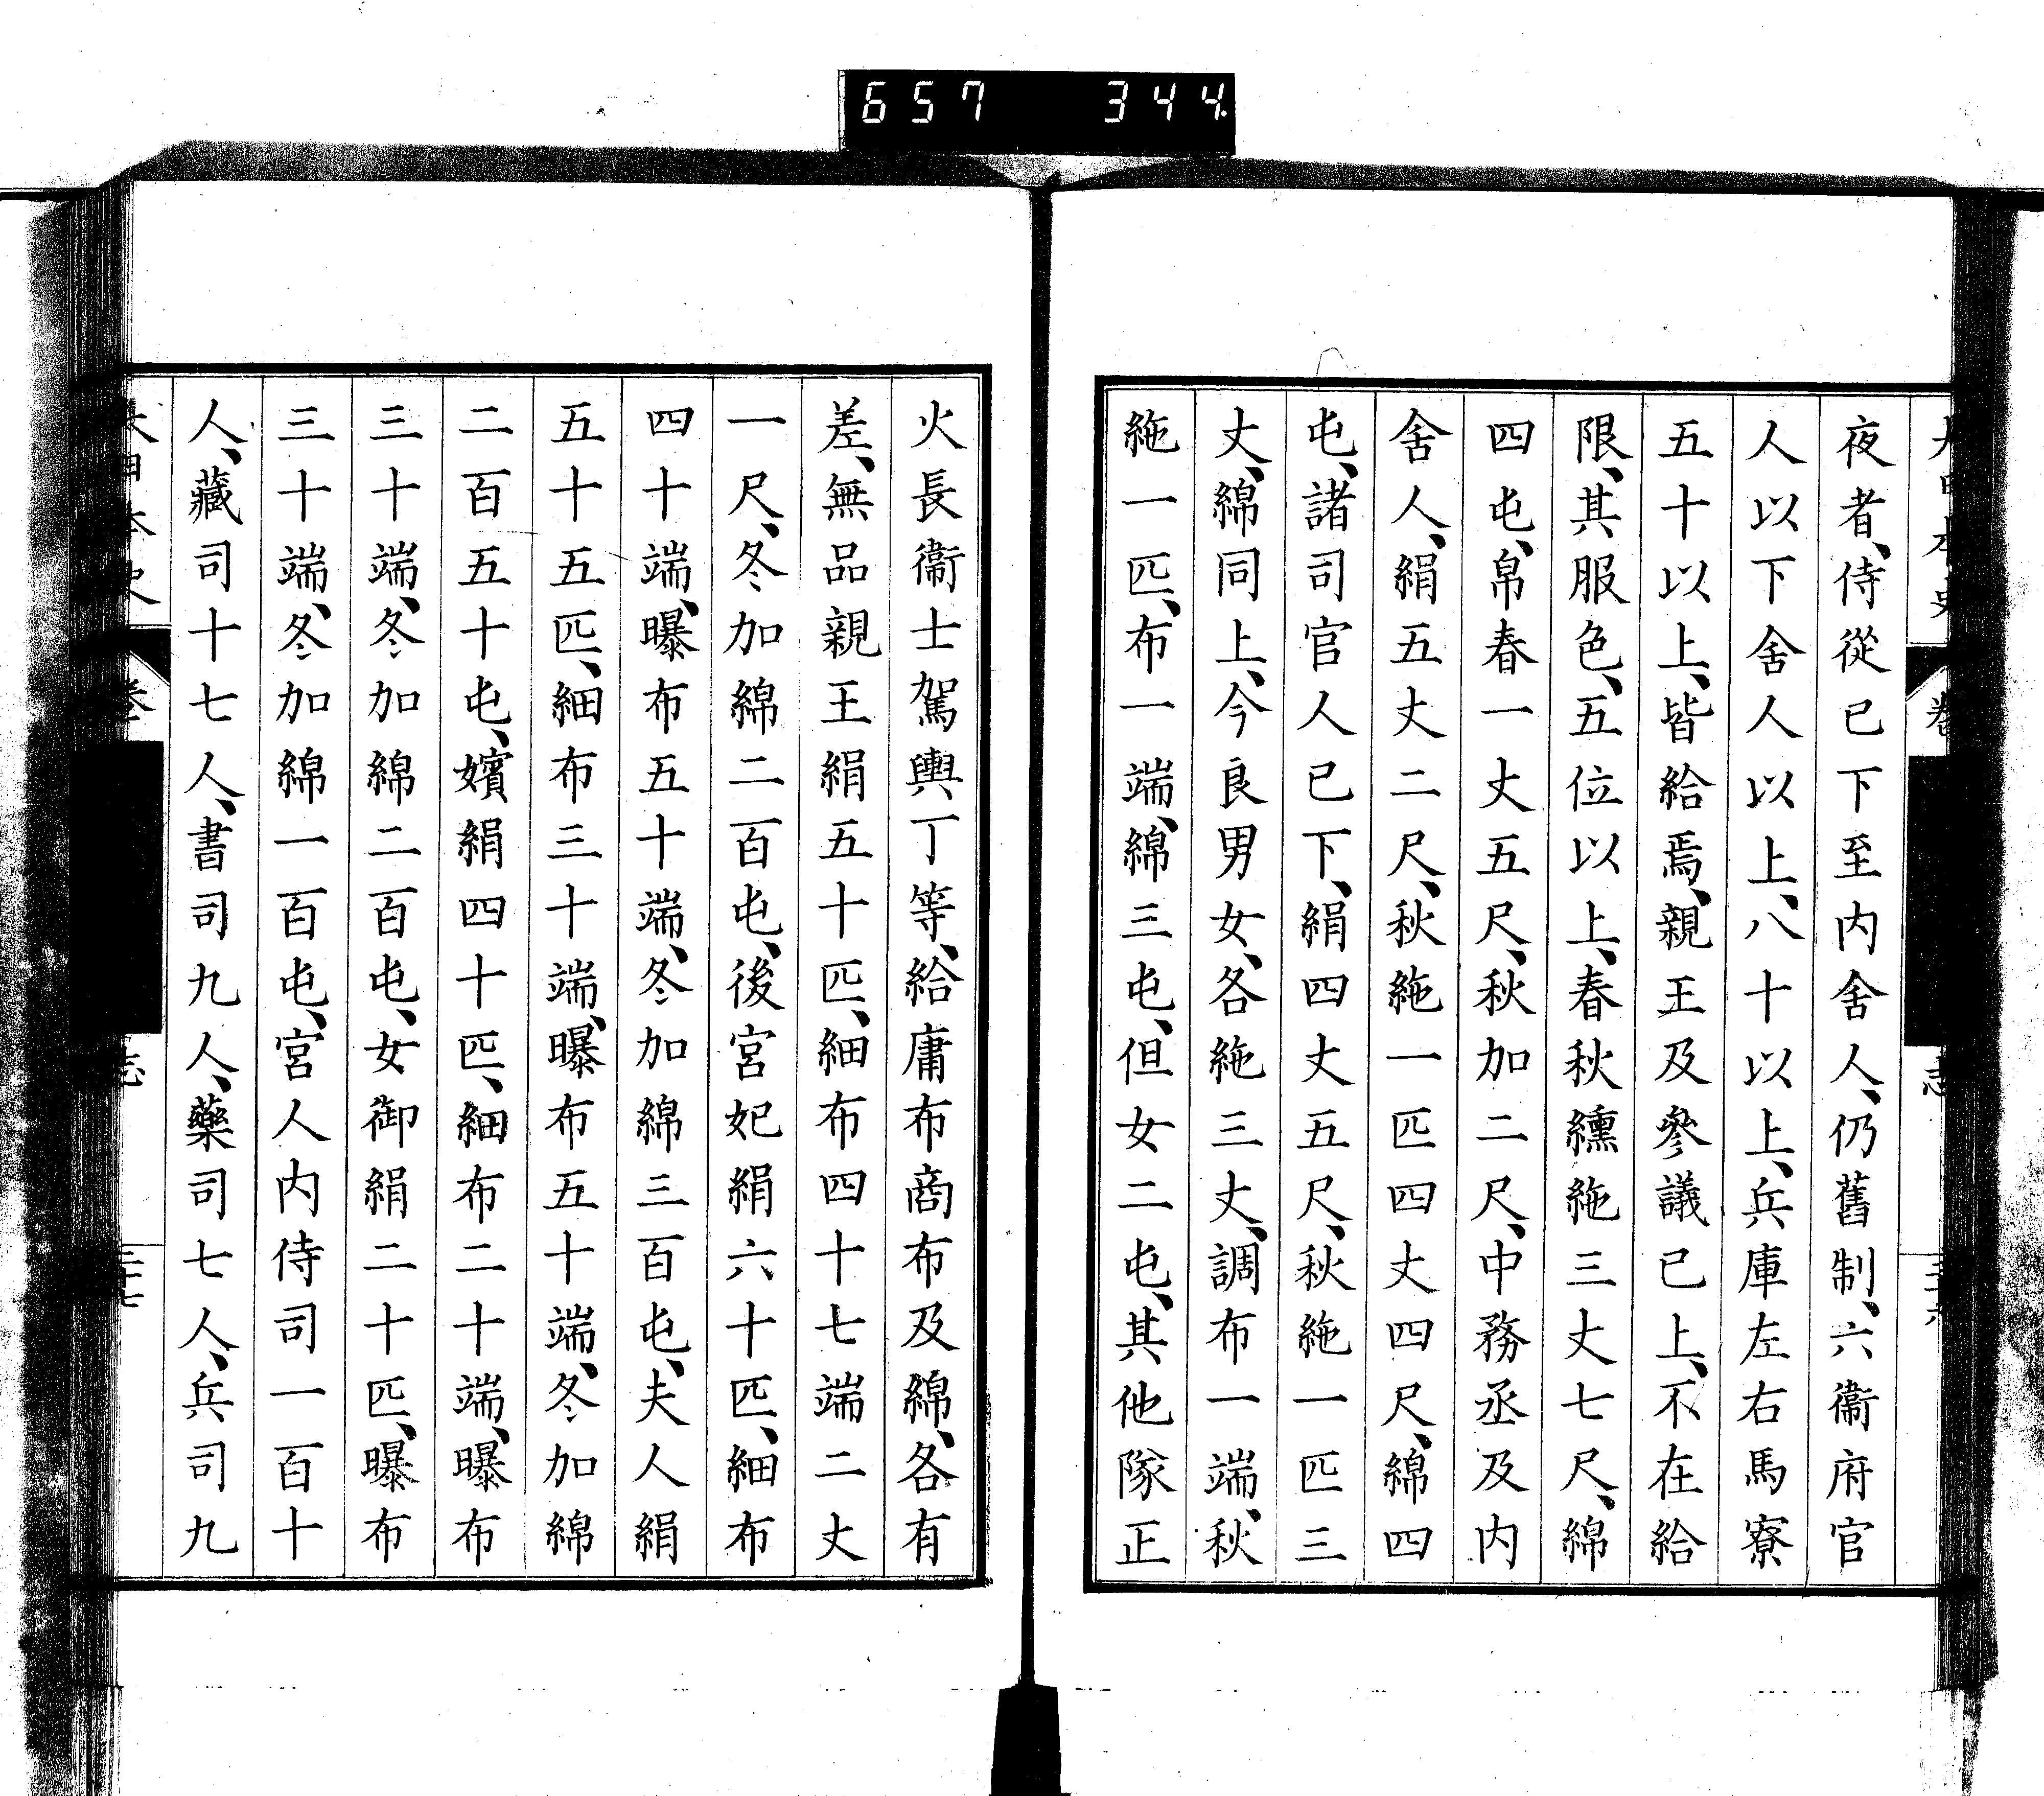 657 344
夜者、侍從已下至内舍人、仍舊制、六衞府官
人以下舍人以上、八十以上、兵庫左右馬寮
五十以上、皆給焉、親王及參議已上、不在給
限、其服色、五位以上、春秋纁絁三丈七尺、綿
四屯、帛春一丈五尺、秋加二尺、中務丞及内
舍人、絹五丈二尺、秋絁一匹四丈四尺、綿四
屯、諸司官人已下、絹四丈五尺、秋絁一匹三
丈、綿同上、今良男女、各絁三丈、調布一端、秋
絁一匹、布一端、綿三屯、但女二屯、其他隊正
火長衞士駕輿丁等、給庸布商布及綿、各有
差、無品親王絹五十匹、細布四十七端二丈
一尺、冬加綿二百屯、後宮妃絹六十匹、細布
四十端、曝布五十端、冬加綿三百屯、夫人絹
五十五匹、細布三十端、曝布五十端、冬加綿
二百五十屯、嬪絹四十匹、細布二十端、曝布
三十端、冬加綿二百屯、女御絹二十匹、曝布
三十端、冬加綿一百屯、宮人内侍司一百十
人、藏司十七人、書司九人、藥司七人、兵司九